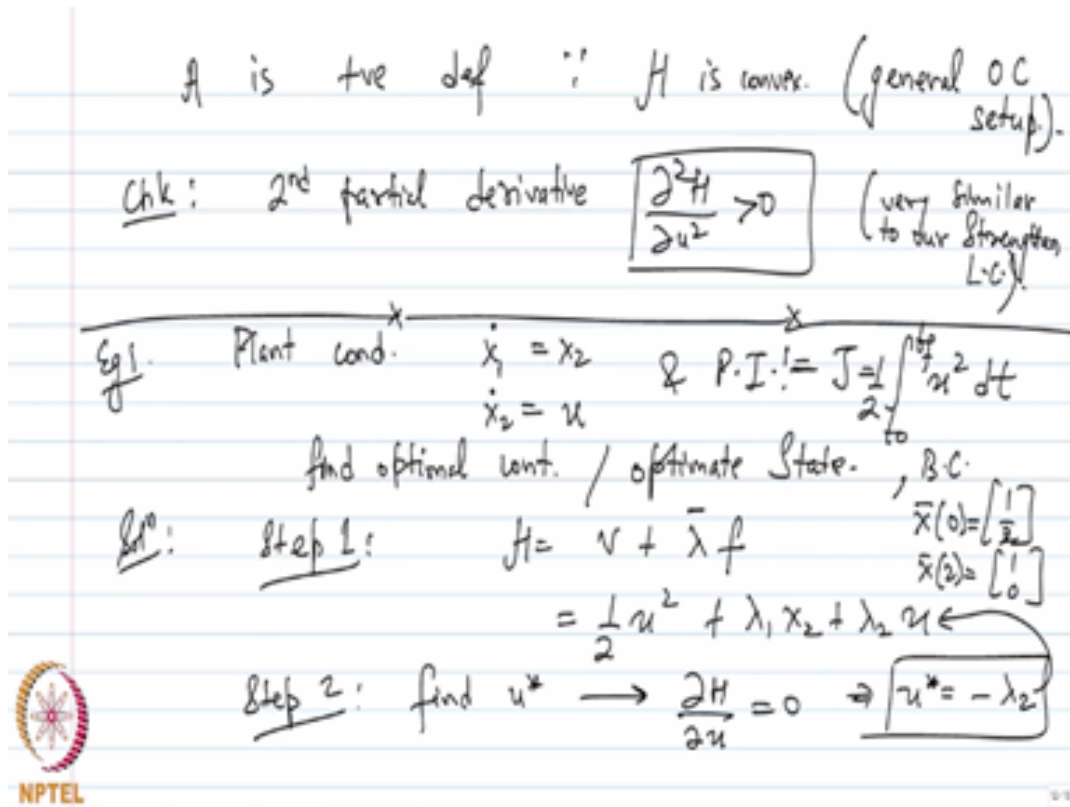 A is +ve def ∵ H is convex. (general OC setup).
Chk: 2nd partial derivative ∂²H/∂u² >0 (very similar to our Strengthen L.C.)
Eg1. Plant cond. ẋ₁ = x₂ & P.I.:= J = 1/2 ∫ u² dt
ẋ₂ = u
find optimal cont. / optimate State. , B.C.
Solⁿ: Step 1: H = V + λ̄ f x̄(0)=[1 2]
x̄(2)=[1 0]
= 1/2 u² + λ₁ x₂ + λ₂ u
Step 2: find u* → ∂H/∂u = 0 ⇒ u* = - λ₂
NPTEL